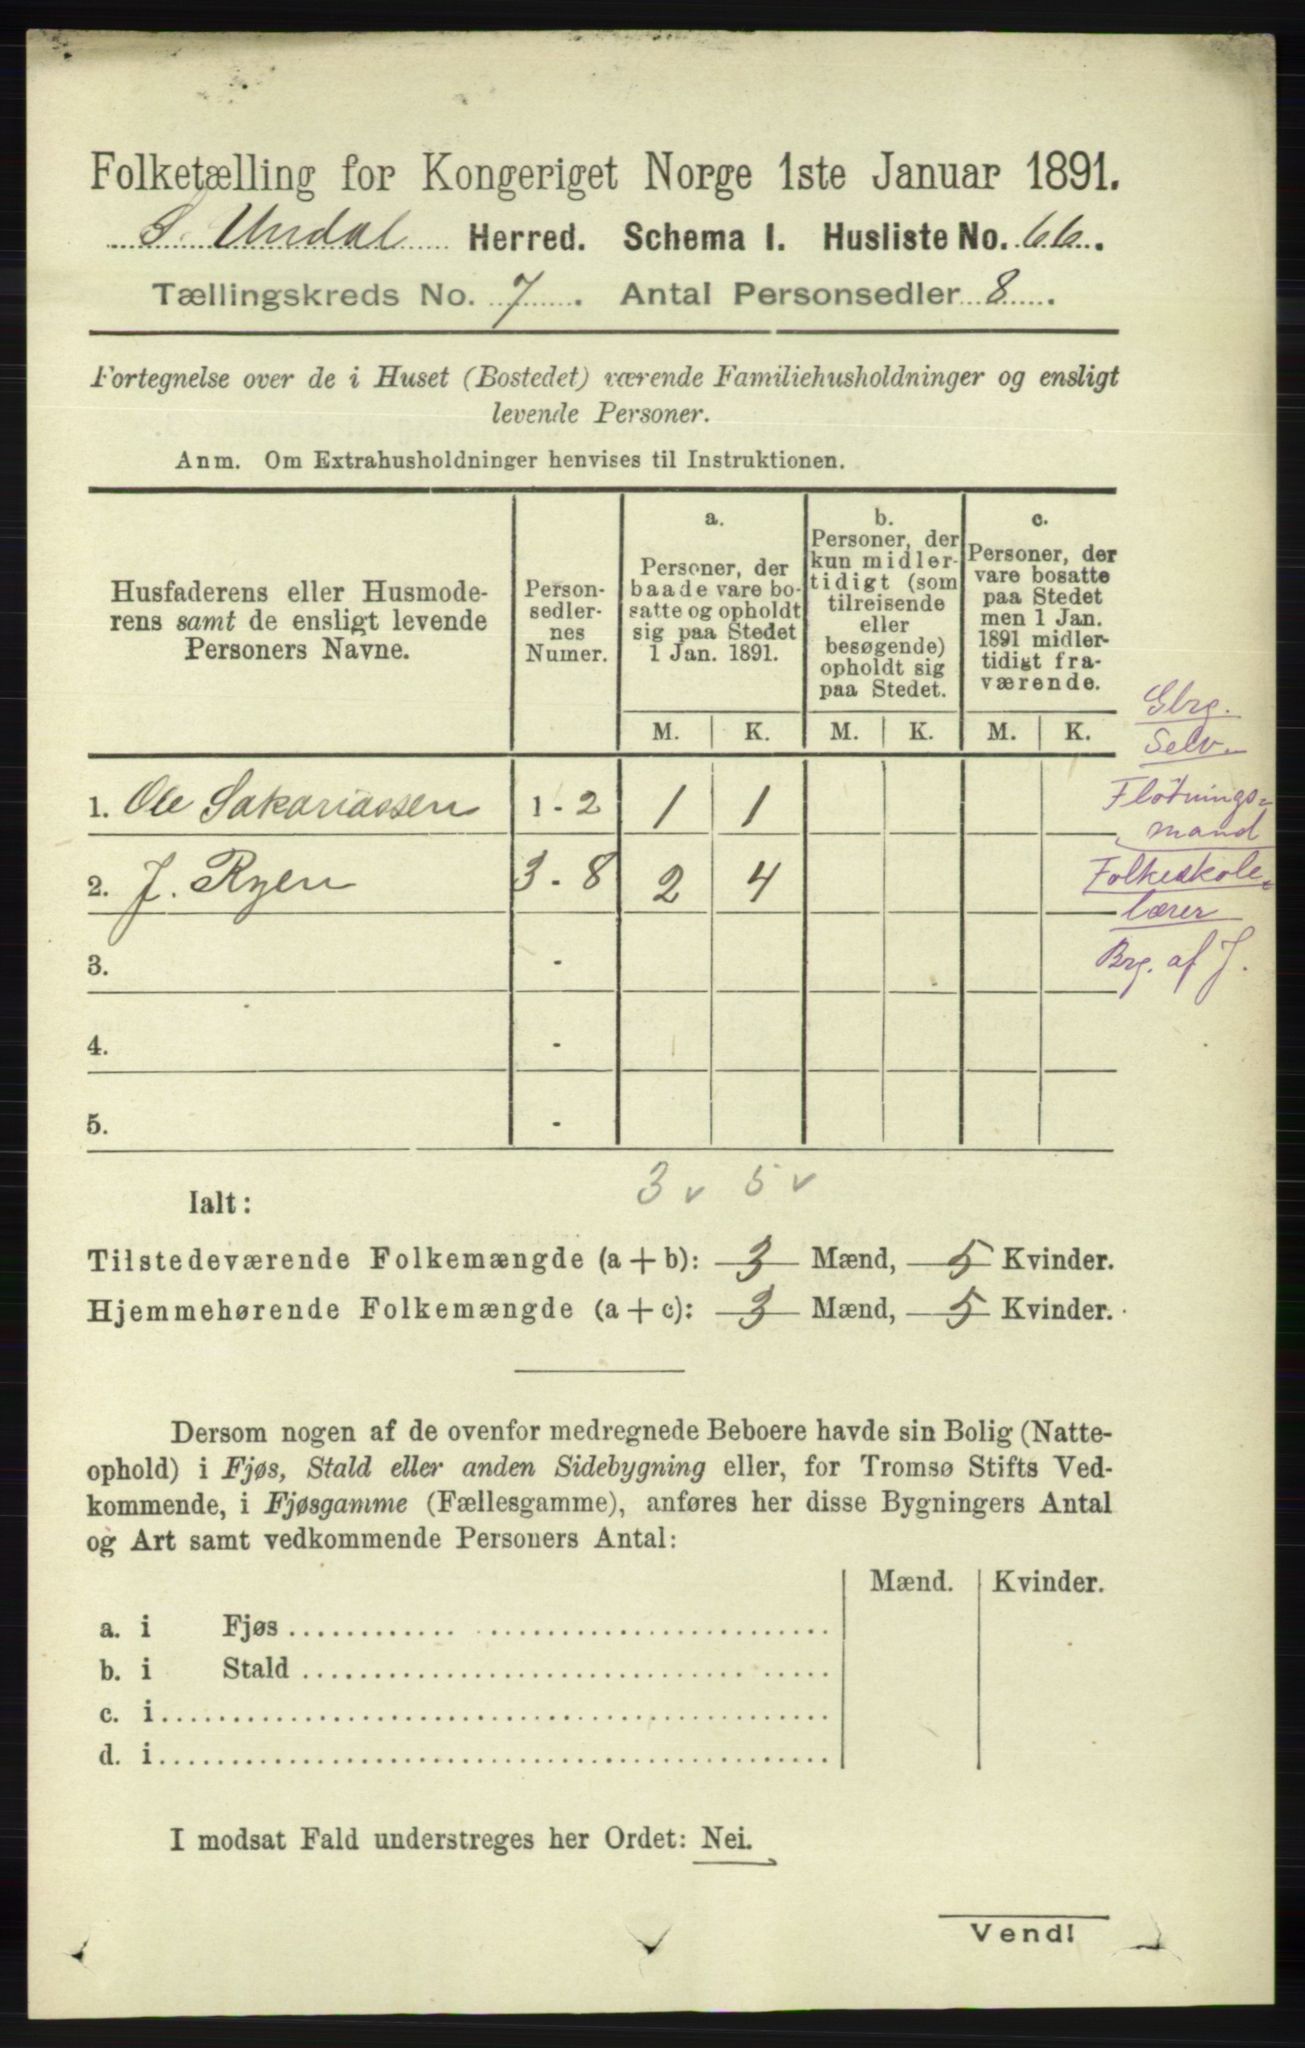 Folketælling for Kongeriget Norge 1ste Januar 1891.
S. Undal Herred. Schema I. Husliste No. 66.
Tællingskreds No. 7. Antal Personsedler 8.
Fortegnelse over de i Huset (Bostedet) værende Familiehusholdninger og ensligt
levende Personer.
Anm. Om Extrahusholdninger henvises til Instruktionen.
Husfaderens eller Husmode-
rens samt de ensligt levende
Personers Navne.
Person-
sedler-
nes
Numer.
a.
Personer, der
baade vare bo-
satte og opholdt
sig paa Stedet
1 Jan. 1891.
b.
Personer, der
kun midler-
tidigt (som
tilreisende
eller
besøgende)
opholdt sig
paa Stedet.
c.
Personer, der
vare bosatte
paa Stedet
men 1 Jan.
1891 midler-
tidigt fra-
værende.
M. K. M. K. M. K.
Gbrg.
Selv.
1. Ole Sakariassen 1 - 2 1 1
Fløtnings-
mand
2. J. Ryen 3 - 8 2 4
Folkeskole-
lærer
3. -
Brg. af J.
4. -
5. -
3 v 5 v
Ialt:
Tilstedeværende Folkemængde (a + b): 3 Mænd, 5 Kvinder.
Hjemmehørende Folkemængde (a + c): 3 Mænd, 5 Kvinder.
Dersom nogen af de ovenfor medregnede Beboere havde sin Bolig (Natte-
ophold) i Fjøs, Stald eller anden Sidebygning eller, for Tromsø Stifts Ved-
kommende, i Fjøsgamme (Fællesgamme), anføres her disse Bygningers Antal
og Art samt vedkommende Personers Antal:
Mænd. Kvinder.
a. i Fjøs
b. i Stald
c. i
d. i
I modsat Fald understreges her Ordet: Nei.
Vend!